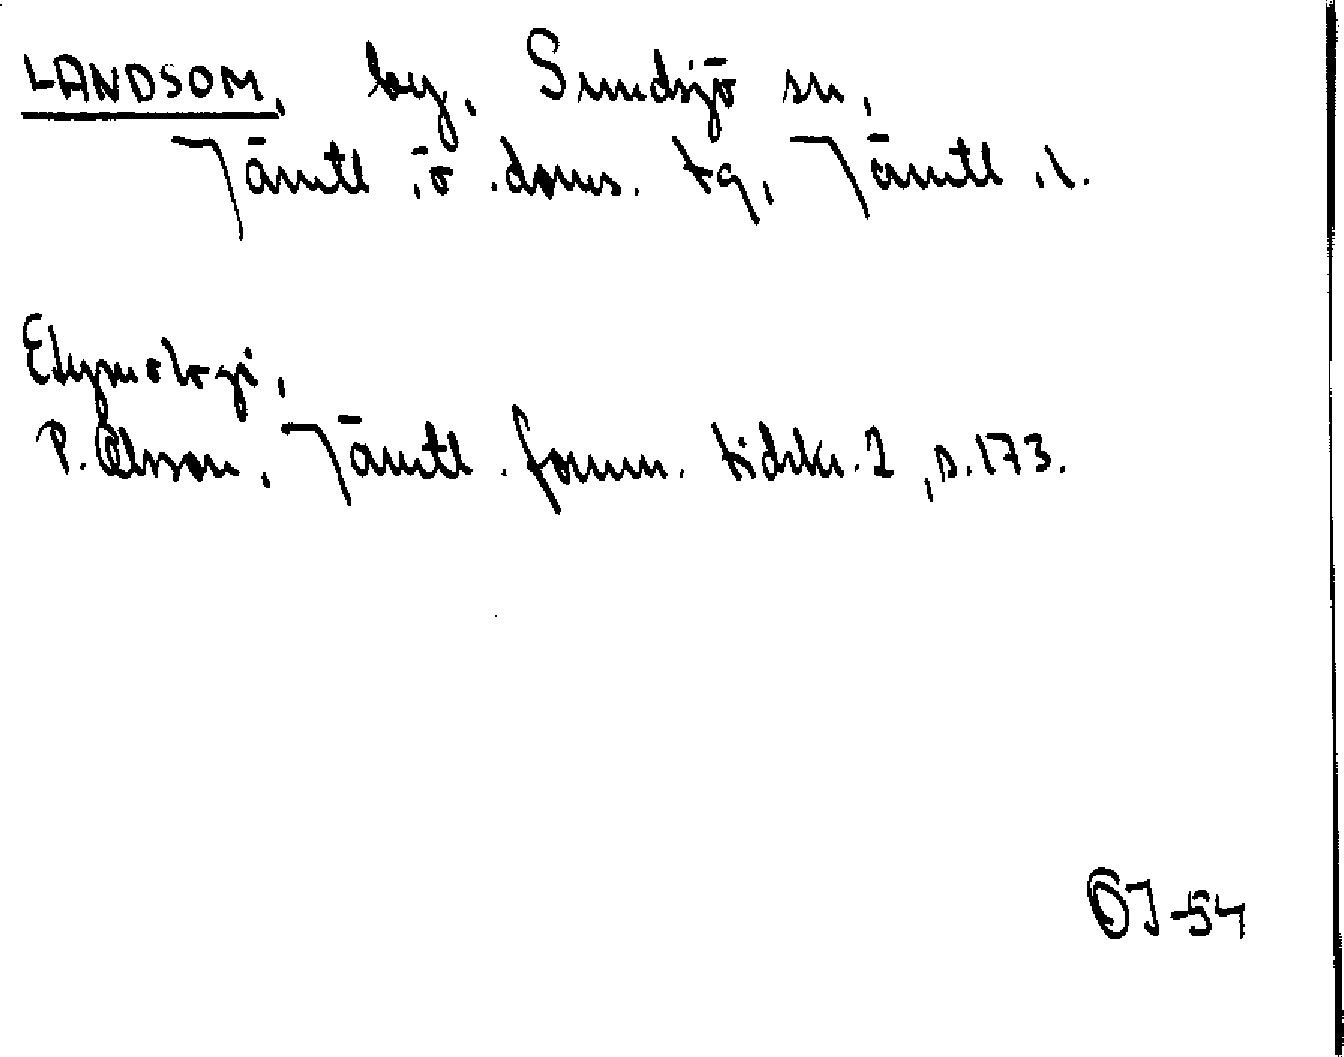 LANDSOM, by, Sundsjö sn,
Jämtl. ö. doms. tg, Jämtl. l.
Etymologi,
P. Olsson, Jämtl. fornm. tidskr. 2, s. 173.
OJ-54